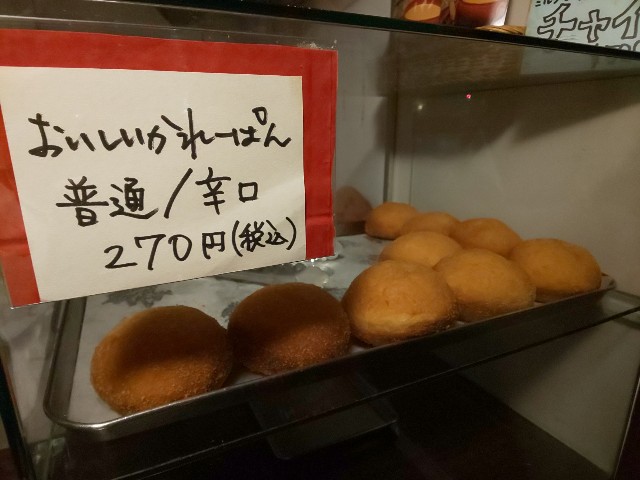 おいしいかれーぱん
普通/辛口
270円(税込)
チャイ